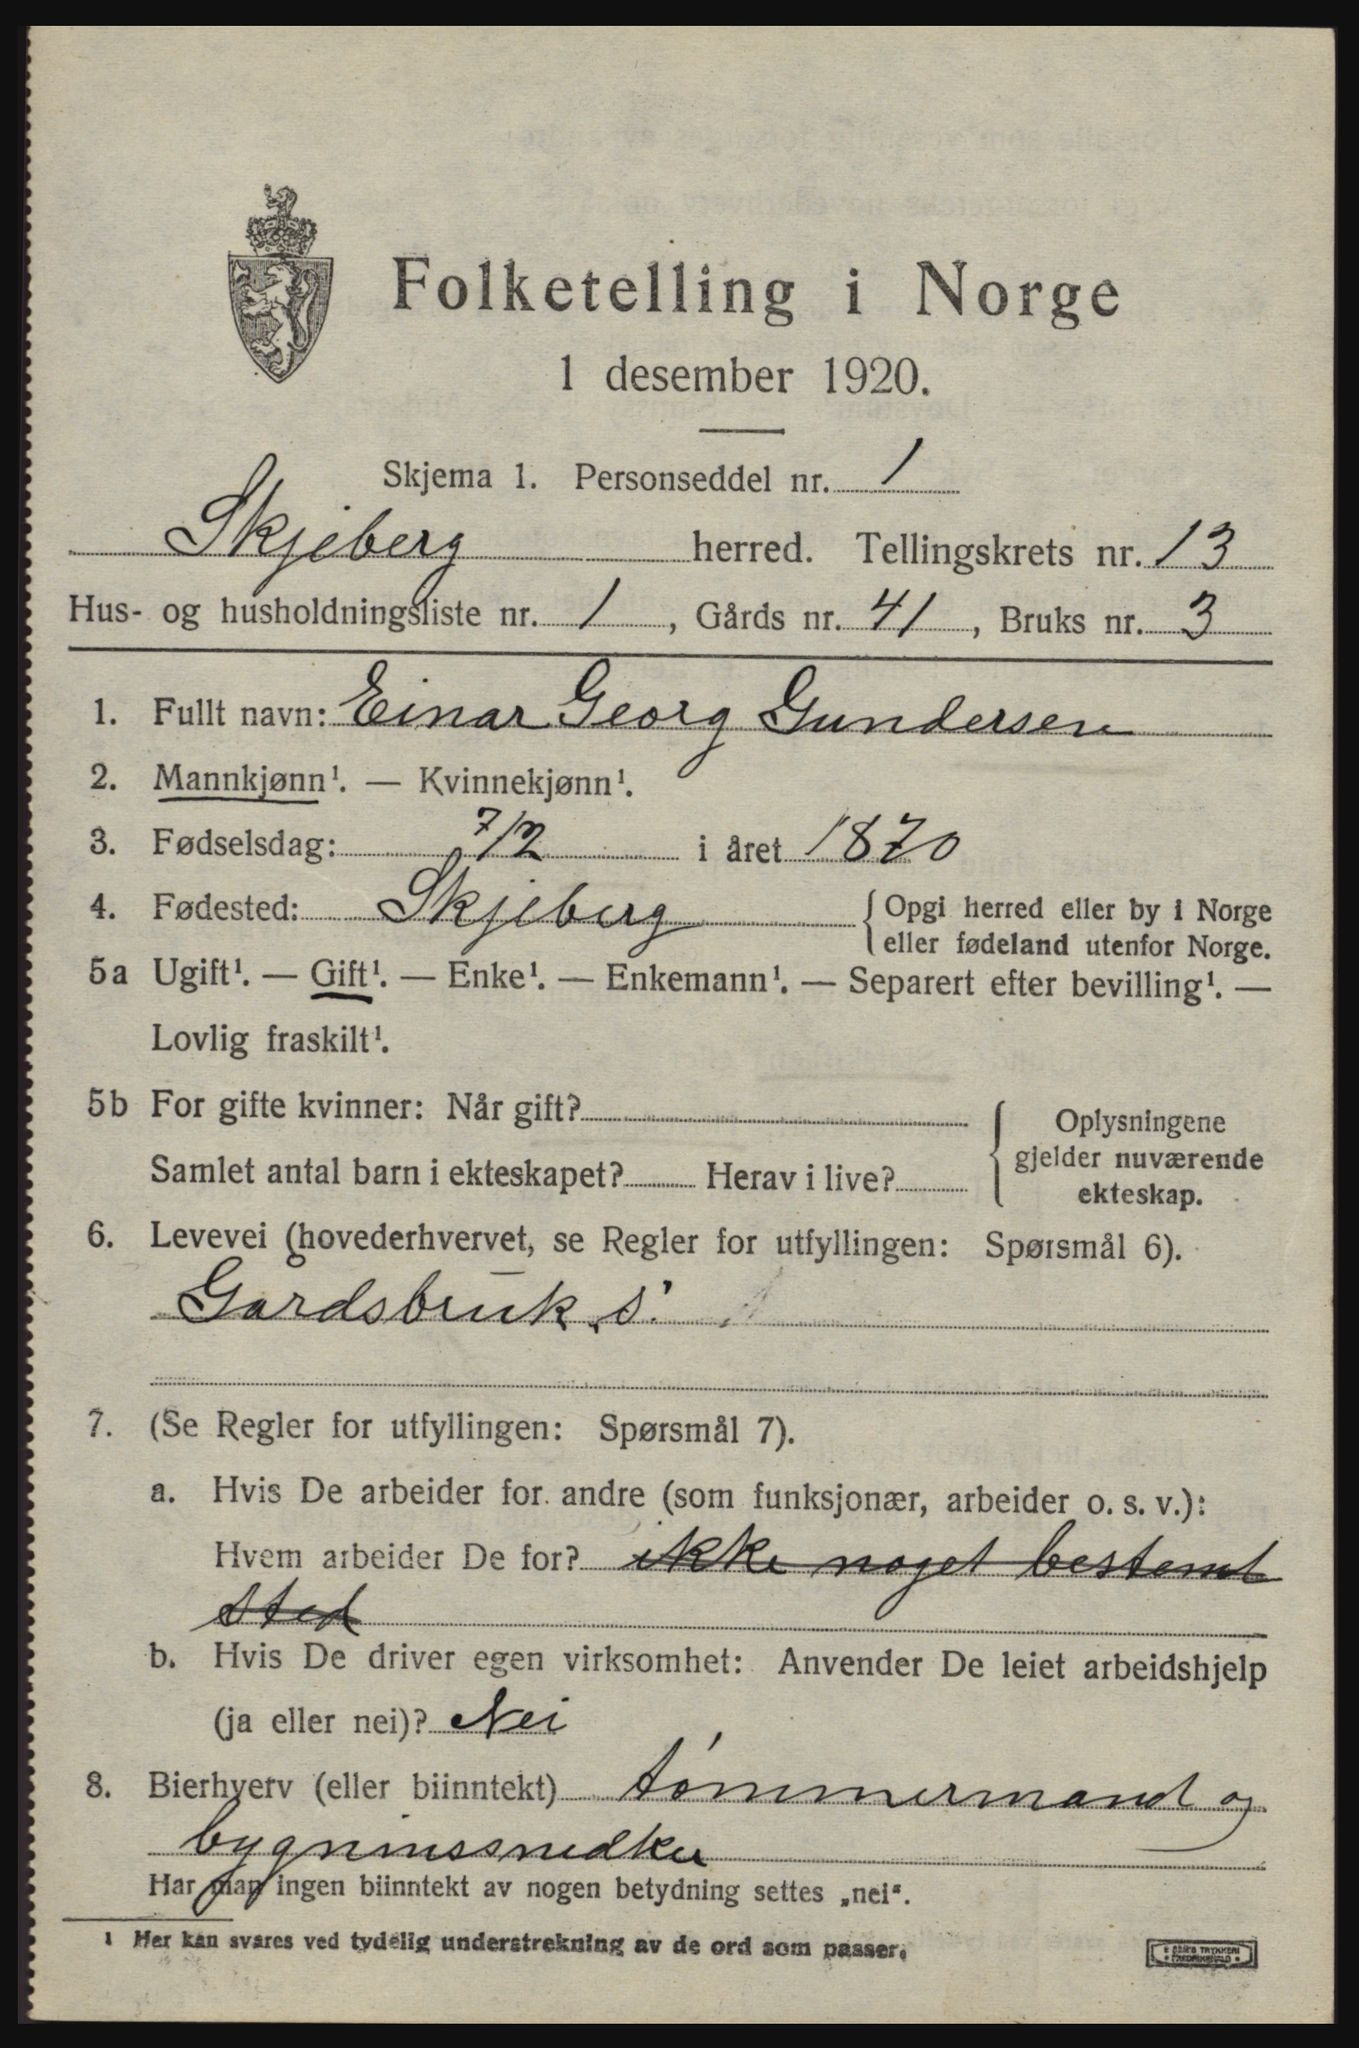 Folketelling i Norge
1 desember 1920.
Skjema 1. Personseddel nr. 1
Skjeberg herred. Tellingskrets nr. 13
Hus- og husholdningsliste nr. 1, Gårds nr. 41, Bruks nr. 3
1. Fullt navn: Einar Georg Gundersen
2. Mannkjønn¹. — Kvinnekjønn¹.
3. Fødselsdag: 7/12 i året 1870
4. Fødested: Skjeberg { Opgi herred eller by i Norge
eller fødeland utenfor Norge.
5a Ugift¹. — Gift¹. — Enke¹. — Enkemann¹. — Separert efter bevilling¹. —
Lovlig fraskilt¹.
5b For gifte kvinner: Når gift?
Samlet antal barn i ekteskapet? Herav i live?
{ Oplysningene
gjelder nuværende
ekteskap.
6. Levevei (hovederhvervet, se Regler for utfyllingen: Spørsmål 6).
Gårdsbruk, s.
7. (Se Regler for utfyllingen: Spørsmål 7).
a. Hvis De arbeider for andre (som funksjonær, arbeider o. s. v.):
Hvem arbeider De for? ikke noget bestemt
sted
b. Hvis De driver egen virksomhet: Anvender De leiet arbeidshjelp
(ja eller nei)? Nei
8. Bierhverv (eller biinntekt) tømmermand og
bygninssnedker
Har man ingen biinntekt av nogen betydning settes „nei".
1 Her kan svares ved tydelig understrekning av de ord som passer.